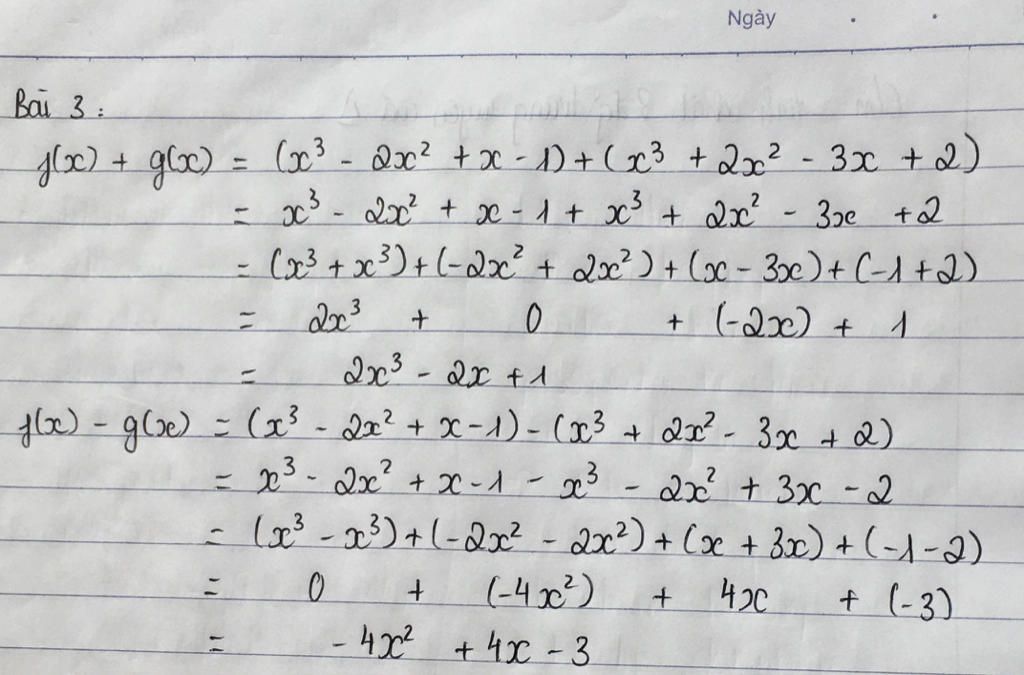 Ngày
Bài 3:
f(x) + g(x) = (x³ - 2x² + x - 1) + (x³ + 2x² - 3x + 2)
= x³ - 2x² + x - 1 + x³ + 2x² - 3x + 2
= (x³ + x³) + (-2x² + 2x²) + (x - 3x) + (-1 + 2)
= 2x³ + 0 + (-2x) + 1
= 2x³ - 2x + 1
f(x) - g(x) = (x³ - 2x² + x - 1) - (x³ + 2x² - 3x + 2)
= x³ - 2x² + x - 1 - x³ - 2x² + 3x - 2
= (x³ - x³) + (-2x² - 2x²) + (x + 3x) + (-1 - 2)
= 0 + (-4x²) + 4x + (-3)
= - 4x² + 4x - 3